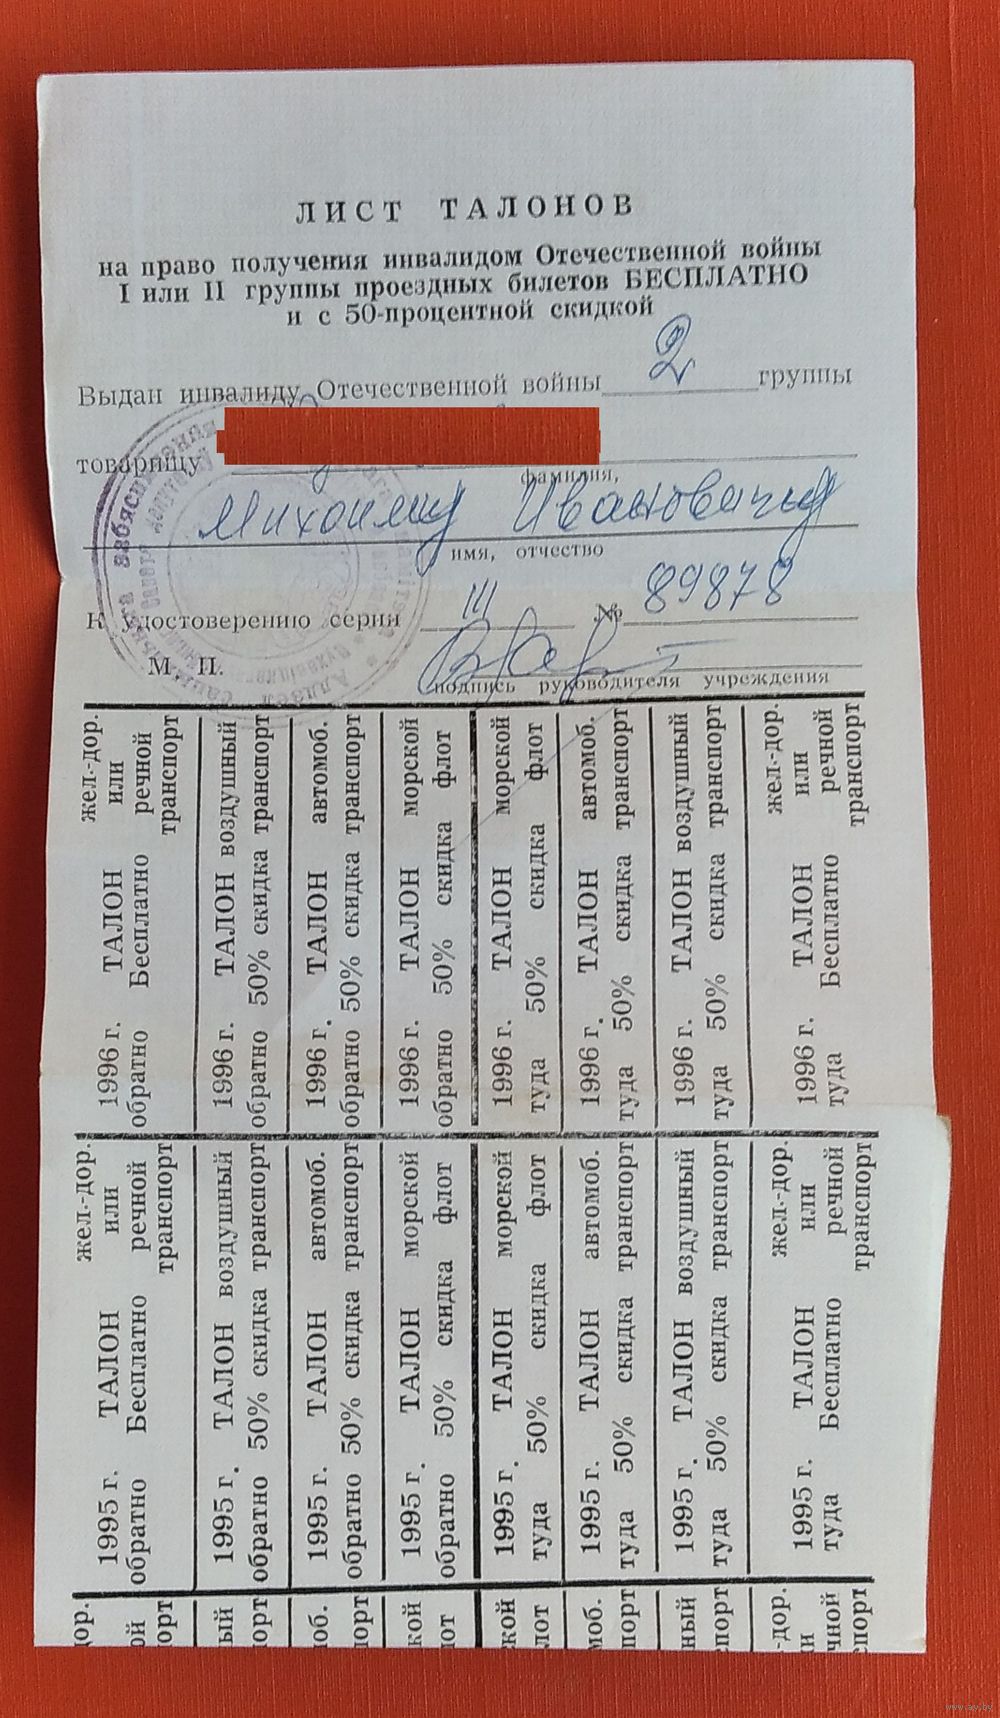 ЛИСТ ТАЛОНОВ
на право получения инвалидом Отечественной войны
I или II группы проездных билетов БЕСПЛАТНО
и с 50-процентной скидкой
Выдан инвалиду Отечественной войны 2 группы
товарищу
фамилия,
Михаилу Ивановичу
имя, отчество
К удостоверению серии III № 89878
М. П.
подпись руководителя учреждения
1996 г. ТАЛОН жел.-дор. или
обратно Бесплатно речной транспорт
1996 г. ТАЛОН воздушный
обратно 50% скидка транспорт
1996 г. ТАЛОН автомоб.
обратно 50% скидка транспорт
1996 г. ТАЛОН морской
обратно 50% скидка флот
1996 г. ТАЛОН морской
туда 50% скидка флот
1996 г. ТАЛОН автомоб.
туда 50% скидка транспорт
1996 г. ТАЛОН воздушный
туда 50% скидка транспорт
1996 г. ТАЛОН жел.-дор. или
туда Бесплатно речной транспорт
1995 г. ТАЛОН жел.-дор. или
обратно Бесплатно речной транспорт
1995 г. ТАЛОН воздушный
обратно 50% скидка транспорт
1995 г. ТАЛОН автомоб.
обратно 50% скидка транспорт
1995 г. ТАЛОН морской
обратно 50% скидка флот
1995 г. ТАЛОН морской
туда 50% скидка флот
1995 г. ТАЛОН автомоб.
туда 50% скидка транспорт
1995 г. ТАЛОН воздушный
туда 50% скидка транспорт
1995 г. ТАЛОН жел.-дор. или
туда Бесплатно речной транспорт
www.ay.by